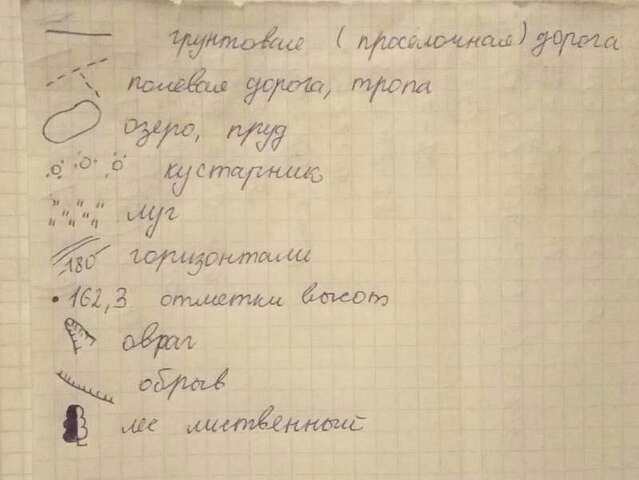 грунтовая (проселочная) дорога
полевая дорога, тропа
озеро, пруд
кустарник
луг
180 горизонтали
162,3 отметки высот
овраг
обрыв
лес лиственный